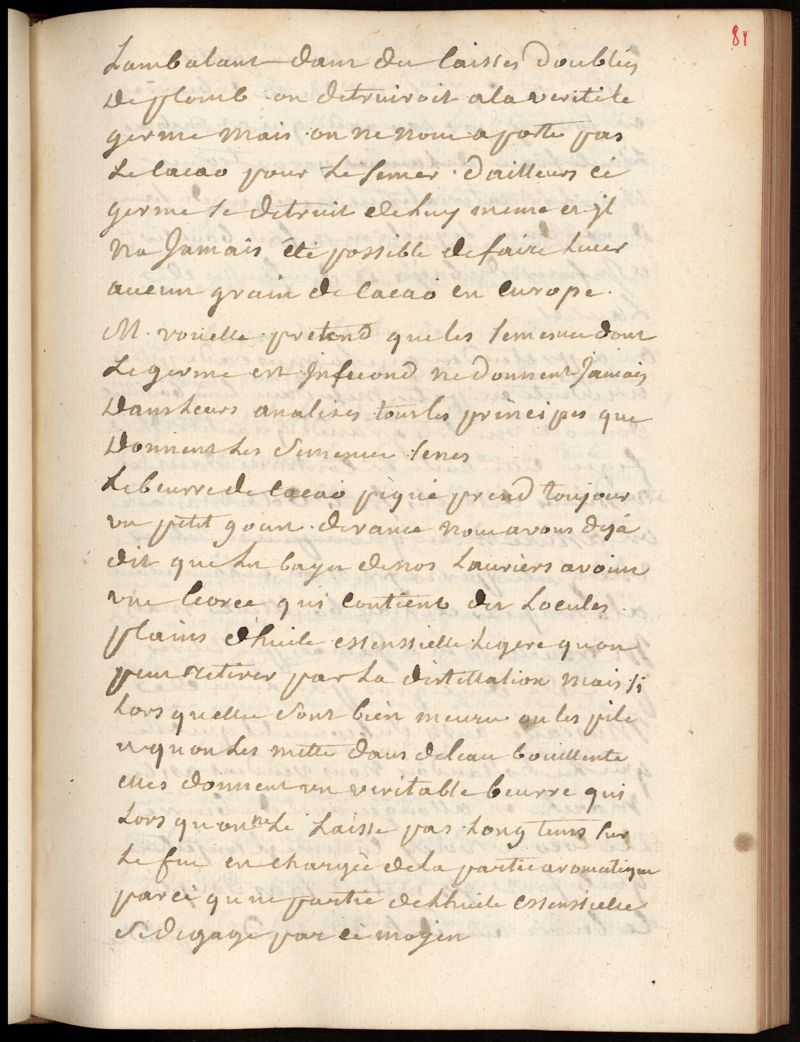 81
Lambalant dans des caisses doublés
De plomb on detruiroit a la verité le
germe mais on ne nous aporte pas
Le Cacao pour le semer. d'ailleurs ce
germe se detruit de luy meme et jl
na Jamais été possible de faire lever
aucun grain de Cacao en Europe.
M. rouelle pretend que les semences dont
Le germe est Infecond ne donnent Jamais
Dans leurs analises tous les principes que
Donnent les Semences
Le beurre de Cacao piqué prend toujour
un petit gout de rance nous avons dejà
dit que les bayes de nos Lauriers avoient
une Ecorce qui Contient des Locules
plains d'huile essenssielle Legere quon
peut retirer par La distillation mais si
Lors quelles sont bien meures on les pile
et quon Les mette dans de leau bouillente
elles donnent un veritable beurre qui
Lors quon ne Le Laisse pas Long tems sur
Le feu en chargée de la partie aromatique
parcé qu'une partie de Lhuile essenssielle
Se degage par ce moyen